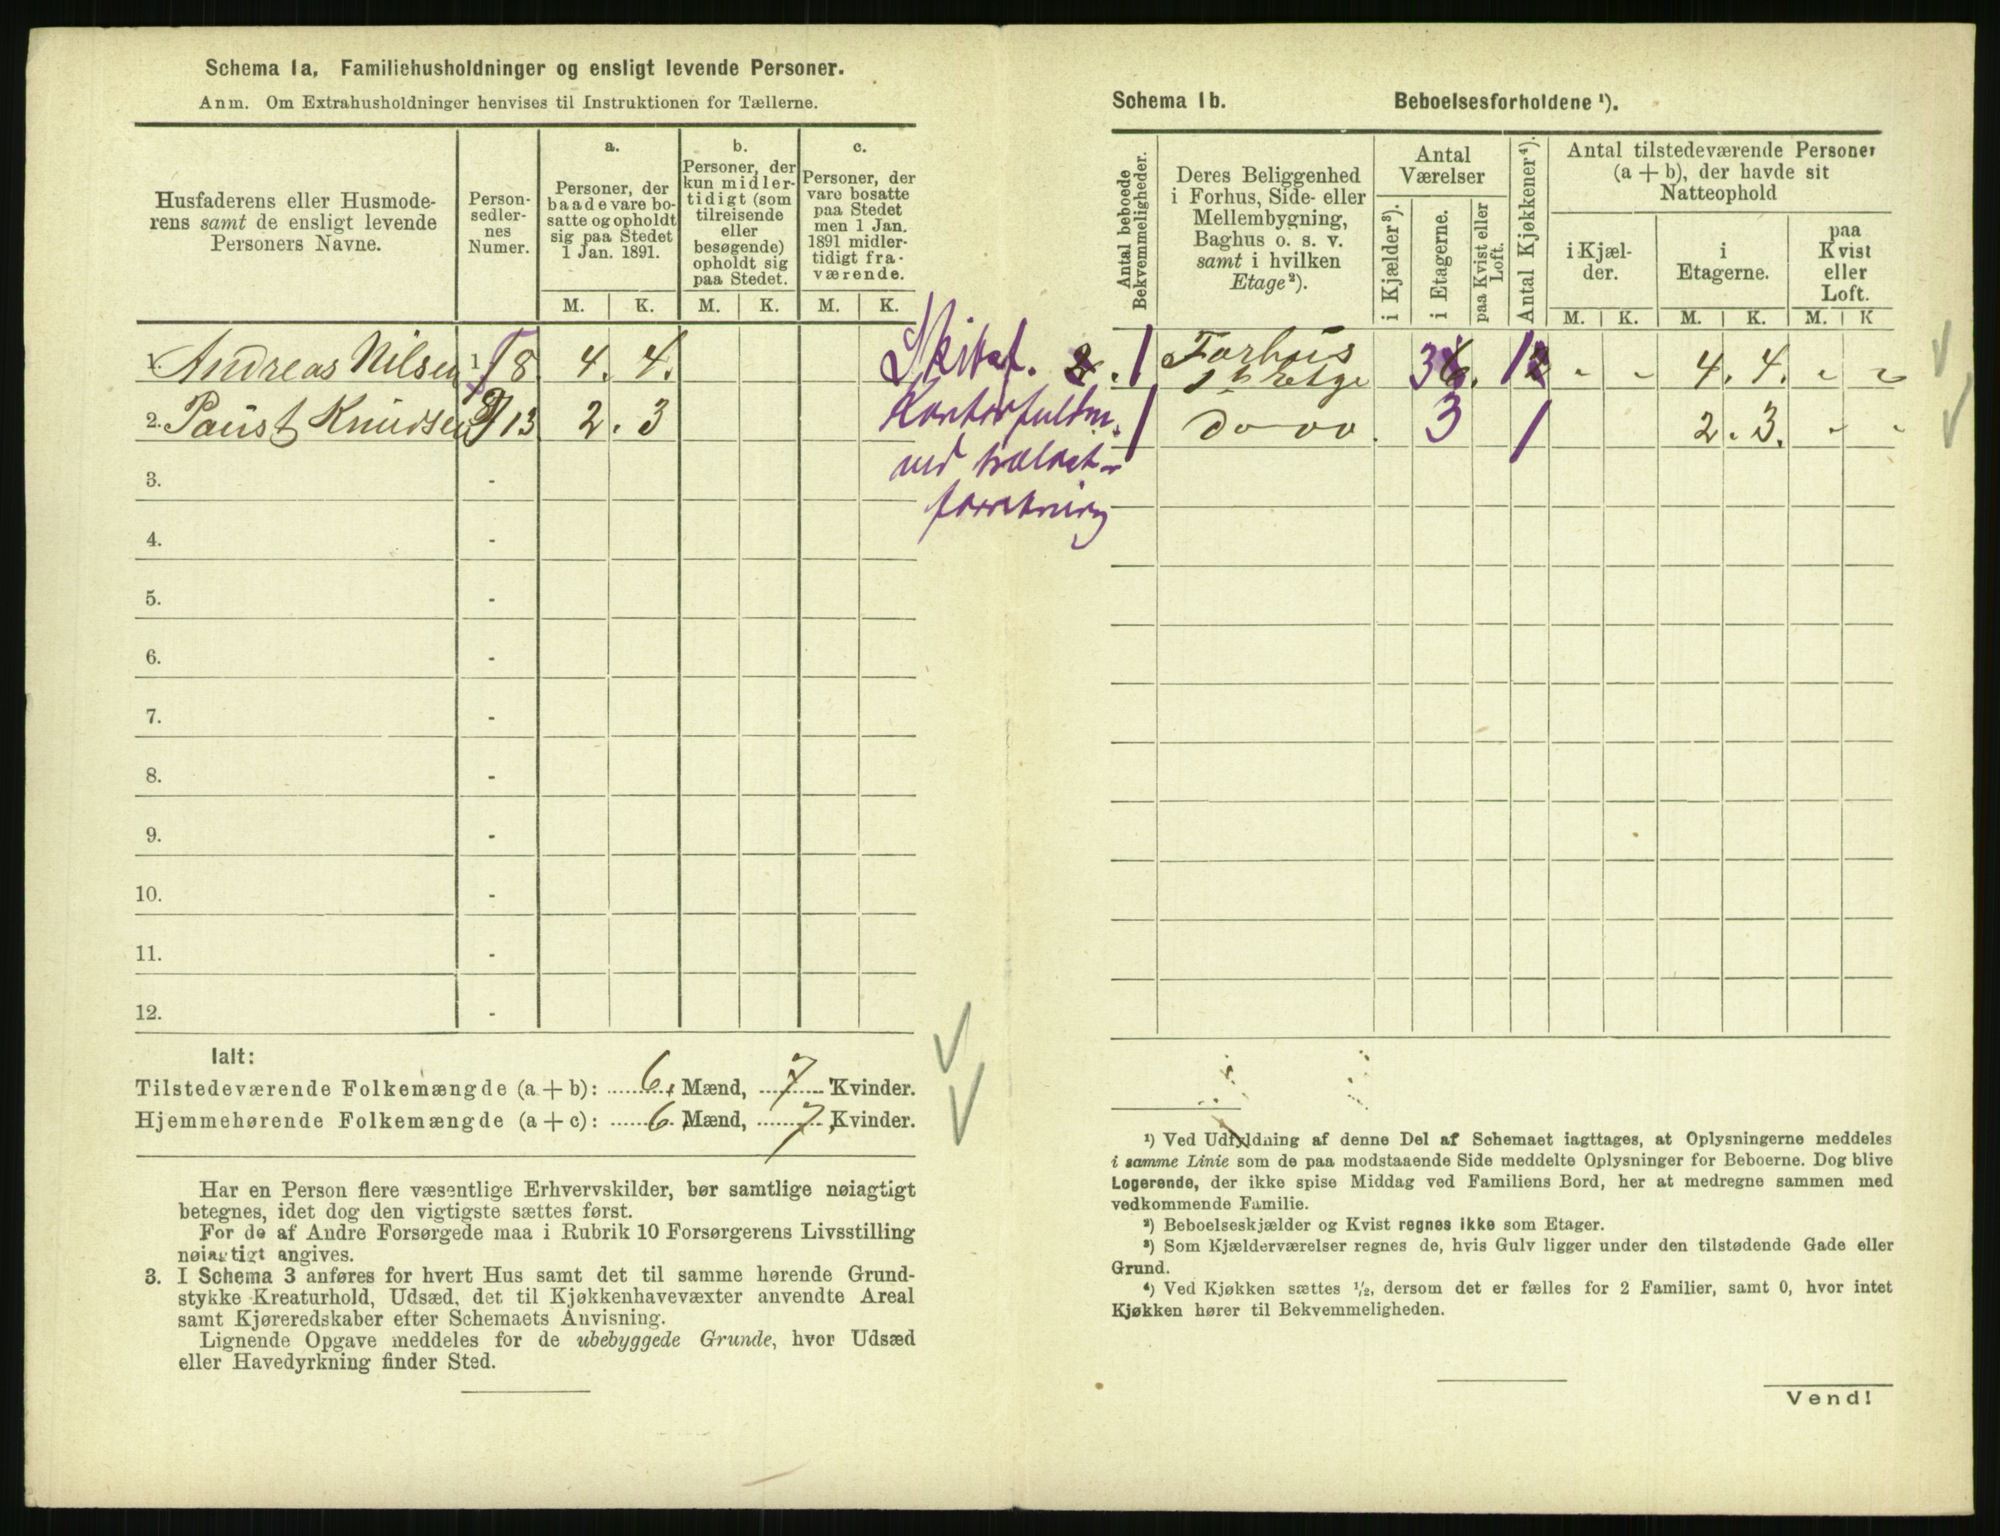 Schema 1a. Familiehusholdninger og ensligt levende Personer.
Anm. Om Extrahusholdninger henvises til Instruktionen for Tællerne.
Husfaderens eller Husmode-
rens samt de ensligt levende
Personers Navne.
Person-
sedler-
nes
Numer.
a.
Personer, der
baade vare bo-
satte og opholdt
sig paa Stedet
1 Jan. 1891.
b.
Personer, der
kun midler-
tidigt (som
tilreisende
eller
besøgende)
opholdt sig
paa Stedet.
c.
Personer, der
vare bosatte
paa Stedet
men 1 Jan.
1891 midler-
tidigt fra-
værende.
M. K. M. K. M. K.
1. Andreas Nilsen 1 8 4. 4.
2. Paust Knudsen 9 13 2. 3
3. -
4. -
5. -
6. -
7. -
8. -
9. -
10. -
11. -
12. -
Ialt:
Tilstedeværende Folkemængde (a + b): 6. Mænd, 7 Kvinder.
Hjemmehørende Folkemængde (a + c): 6 Mænd, 7 Kvinder.
Har en Person flere væsentlige Erhvervskilder, bør samtlige nøiagtigt
betegnes, idet dog den vigtigste sættes først.
For de af Andre Forsørgede maa i Rubrik 10 Forsørgerens Livsstilling
nøiagtigt angives.
3. I Schema 3 anføres for hvert Hus samt det til samme hørende Grund-
stykke Kreaturhold, Udsæd, det til Kjøkkenhavevæxter anvendte Areal
samt Kjøreredskaber efter Schemaets Anvisning.
Lignende Opgave meddeles for de ubebyggede Grunde, hvor Udsæd
eller Havedyrkning finder Sted.
ved trælast-
forretning
Schema 1b. Beboelsesforholdene ¹).
Antal beboede
Bekvemmeligheder.
Deres Beliggenhed
i Forhus, Side- eller
Mellembygning,
Baghus o. s. v.
samt i hvilken
Etage²).
Antal
Værelser
i Kjælder³).
i Etagerne.
paa Kvist eller
Loft.
Antal Kjøkkener⁴).
Antal tilstedeværende Personer
(a + b), der havde sit
Natteophold
i Kjæl-
der.
i
Etagerne.
paa
Kvist
eller
Loft.
M. K. M. K. M. K
1 Forhus
1ste Etage 3 1 - - 4. 4. - -
1 Do Do. 3 1 2. 3. - -
¹) Ved Udfyldning af denne Del af Schemaet iagttages, at Oplysningerne meddeles
i samme Linie som de paa modstaaende Side meddelte Oplysninger for Beboerne. Dog blive
Logerende, der ikke spise Middag ved Familiens Bord, her at medregne sammen med
vedkommende Familie.
²) Beboelseskjælder og Kvist regnes ikke som Etager.
³) Som Kjælderværelser regnes de, hvis Gulv ligger under den tilstødende Gade eller
Grund.
⁴) Ved Kjøkken sættes ½, dersom det er fælles for 2 Familier, samt 0, hvor intet
Kjøkken hører til Bekvemmeligheden.
Vend!